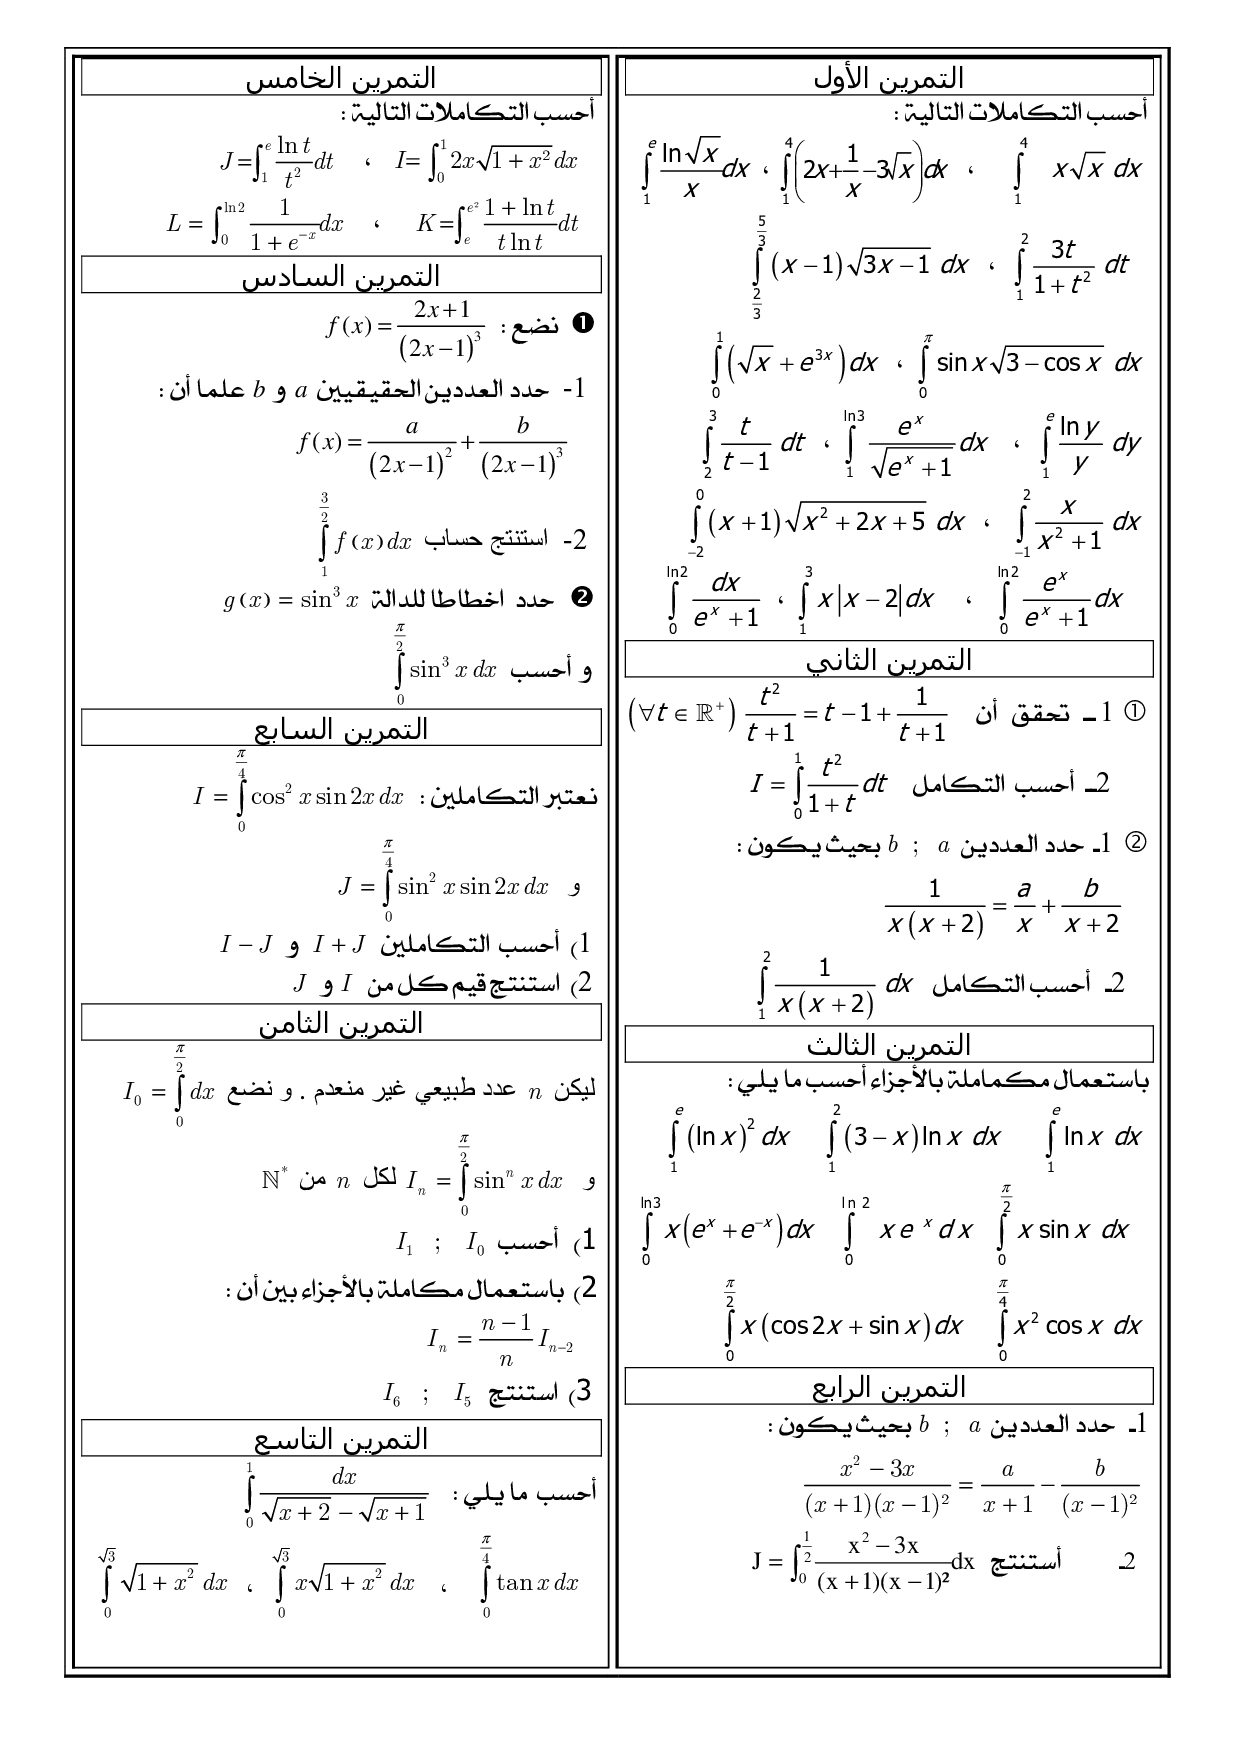 التمرين الأول
أحسب التكاملات التالية :
$\int_1^4 x\sqrt{x}\,dx$ ، $\int_1^4 \left(2x+\frac{1}{x}-3\sqrt{x}\right)dx$ ، $\int_1^e \frac{\ln\sqrt{x}}{x}dx$
$\int_1^2 \frac{3t}{1+t^2}\,dt$ ، $\int_{\frac{2}{3}}^{\frac{5}{3}} (x-1)\sqrt{3x-1}\,dx$
$\int_0^\pi \sin x\sqrt{3-\cos x}\,dx$ ، $\int_0^1 \left(\sqrt{x}+e^{3x}\right)dx$
$\int_1^e \frac{\ln y}{y}\,dy$ ، $\int_1^{\ln 3} \frac{e^x}{\sqrt{e^x+1}}dx$ ، $\int_2^3 \frac{t}{t-1}\,dt$
$\int_{-1}^2 \frac{x}{x^2+1}\,dx$ ، $\int_{-2}^0 (x+1)\sqrt{x^2+2x+5}\,dx$
$\int_0^{\ln 2} \frac{e^x}{e^x+1}dx$ ، $\int_1^3 x|x-2|dx$ ، $\int_0^{\ln 2} \frac{dx}{e^x+1}$
التمرين الثاني
① 1 ـ تحقق أن $\frac{t^2}{t+1}=t-1+\frac{1}{t+1}$ $(\forall t\in\mathbb{R}^+)$
2ـ أحسب التكامل $I=\int_0^1 \frac{t^2}{1+t}dt$
② 1ـ حدد العددين a ; b بحيث يكون :
$\frac{1}{x(x+2)}=\frac{a}{x}+\frac{b}{x+2}$
2ـ أحسب التكامل $\int_1^2 \frac{1}{x(x+2)}\,dx$
التمرين الثالث
باستعمال مكماملة بالأجزاء أحسب ما يلي :
$\int_1^e \ln x\,dx$ $\int_1^2 (3-x)\ln x\,dx$ $\int_1^e (\ln x)^2\,dx$
$\int_0^{\frac{\pi}{2}} x\sin x\,dx$ $\int_0^{\ln 2} xe^{x}dx$ $\int_0^{\ln 3} x\left(e^x+e^{-x}\right)dx$
$\int_0^{\frac{\pi}{4}} x^2\cos x\,dx$ $\int_0^{\frac{\pi}{2}} x(\cos 2x+\sin x)dx$
التمرين الرابع
1ـ حدد العددين a ; b بحيث يكون :
$\frac{x^2-3x}{(x+1)(x-1)^2}=\frac{a}{x+1}-\frac{b}{(x-1)^2}$
2ـ أستنتج $J=\int_0^{\frac{1}{2}} \frac{x^2-3x}{(x+1)(x-1)^2}dx$
التمرين الخامس
أحسب التكاملات التالية :
$I=\int_0^1 2x\sqrt{1+x^2}\,dx$ ، $J=\int_1^e \frac{\ln t}{t^2}dt$
$K=\int_e^{e^2} \frac{1+\ln t}{t\ln t}dt$ ، $L=\int_0^{\ln 2} \frac{1}{1+e^{-x}}dx$
التمرين السادس
❶ نضع : $f(x)=\frac{2x+1}{(2x-1)^3}$
1- حدد العددين الحقيقيين a و b علما أن :
$f(x)=\frac{a}{(2x-1)^2}+\frac{b}{(2x-1)^3}$
2- استنتج حساب $\int_1^{\frac{3}{2}} f(x)dx$
❷ حدد اخطاطا للدالة $g(x)=\sin^3 x$
و أحسب $\int_0^{\frac{\pi}{2}} \sin^3 x\,dx$
التمرين السابع
نعتبر التكاملين : $I=\int_0^{\frac{\pi}{4}} \cos^2 x\sin 2x\,dx$
و $J=\int_0^{\frac{\pi}{4}} \sin^2 x\sin 2x\,dx$
1) أحسب التكاملين $I+J$ و $I-J$
2) استنتج قيم كل من I و J
التمرين الثامن
ليكن n عدد طبيعي غير منعدم . و نضع $I_0=\int_0^{\frac{\pi}{2}} dx$
و $I_n=\int_0^{\frac{\pi}{2}} \sin^n x\,dx$ لكل n من $\mathbb{N}^*$
1) أحسب $I_0$ ; $I_1$
2) باستعمال مكاملة بالأجزاء بين أن :
$I_n=\frac{n-1}{n}I_{n-2}$
3) استنتج $I_5$ ; $I_6$
التمرين التاسع
أحسب ما يلي : $\int_0^1 \frac{dx}{\sqrt{x+2}-\sqrt{x+1}}$
$\int_0^{\frac{\pi}{4}} \tan x\,dx$ ، $\int_0^{\sqrt{3}} x\sqrt{1+x^2}\,dx$ ، $\int_0^{\sqrt{3}} \sqrt{1+x^2}\,dx$